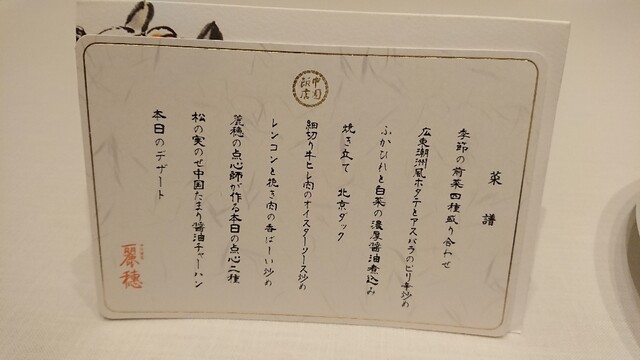 中国
飯店
菜譜
季節の前菜四種盛り合わせ
広東潮洲風ホタテとアスパラのピリ辛炒め
ふかひれと白菜の濃厚醤油煮込み
焼き立て 北京ダック
細切り牛ヒレ肉のオイスターソース炒め
レンコンと挽き肉の香ばしい炒め
麗穂の点心師が作る本日の点心二種
松の実のせ中国たまり醤油チャーハン
本日のデザート
麗穂